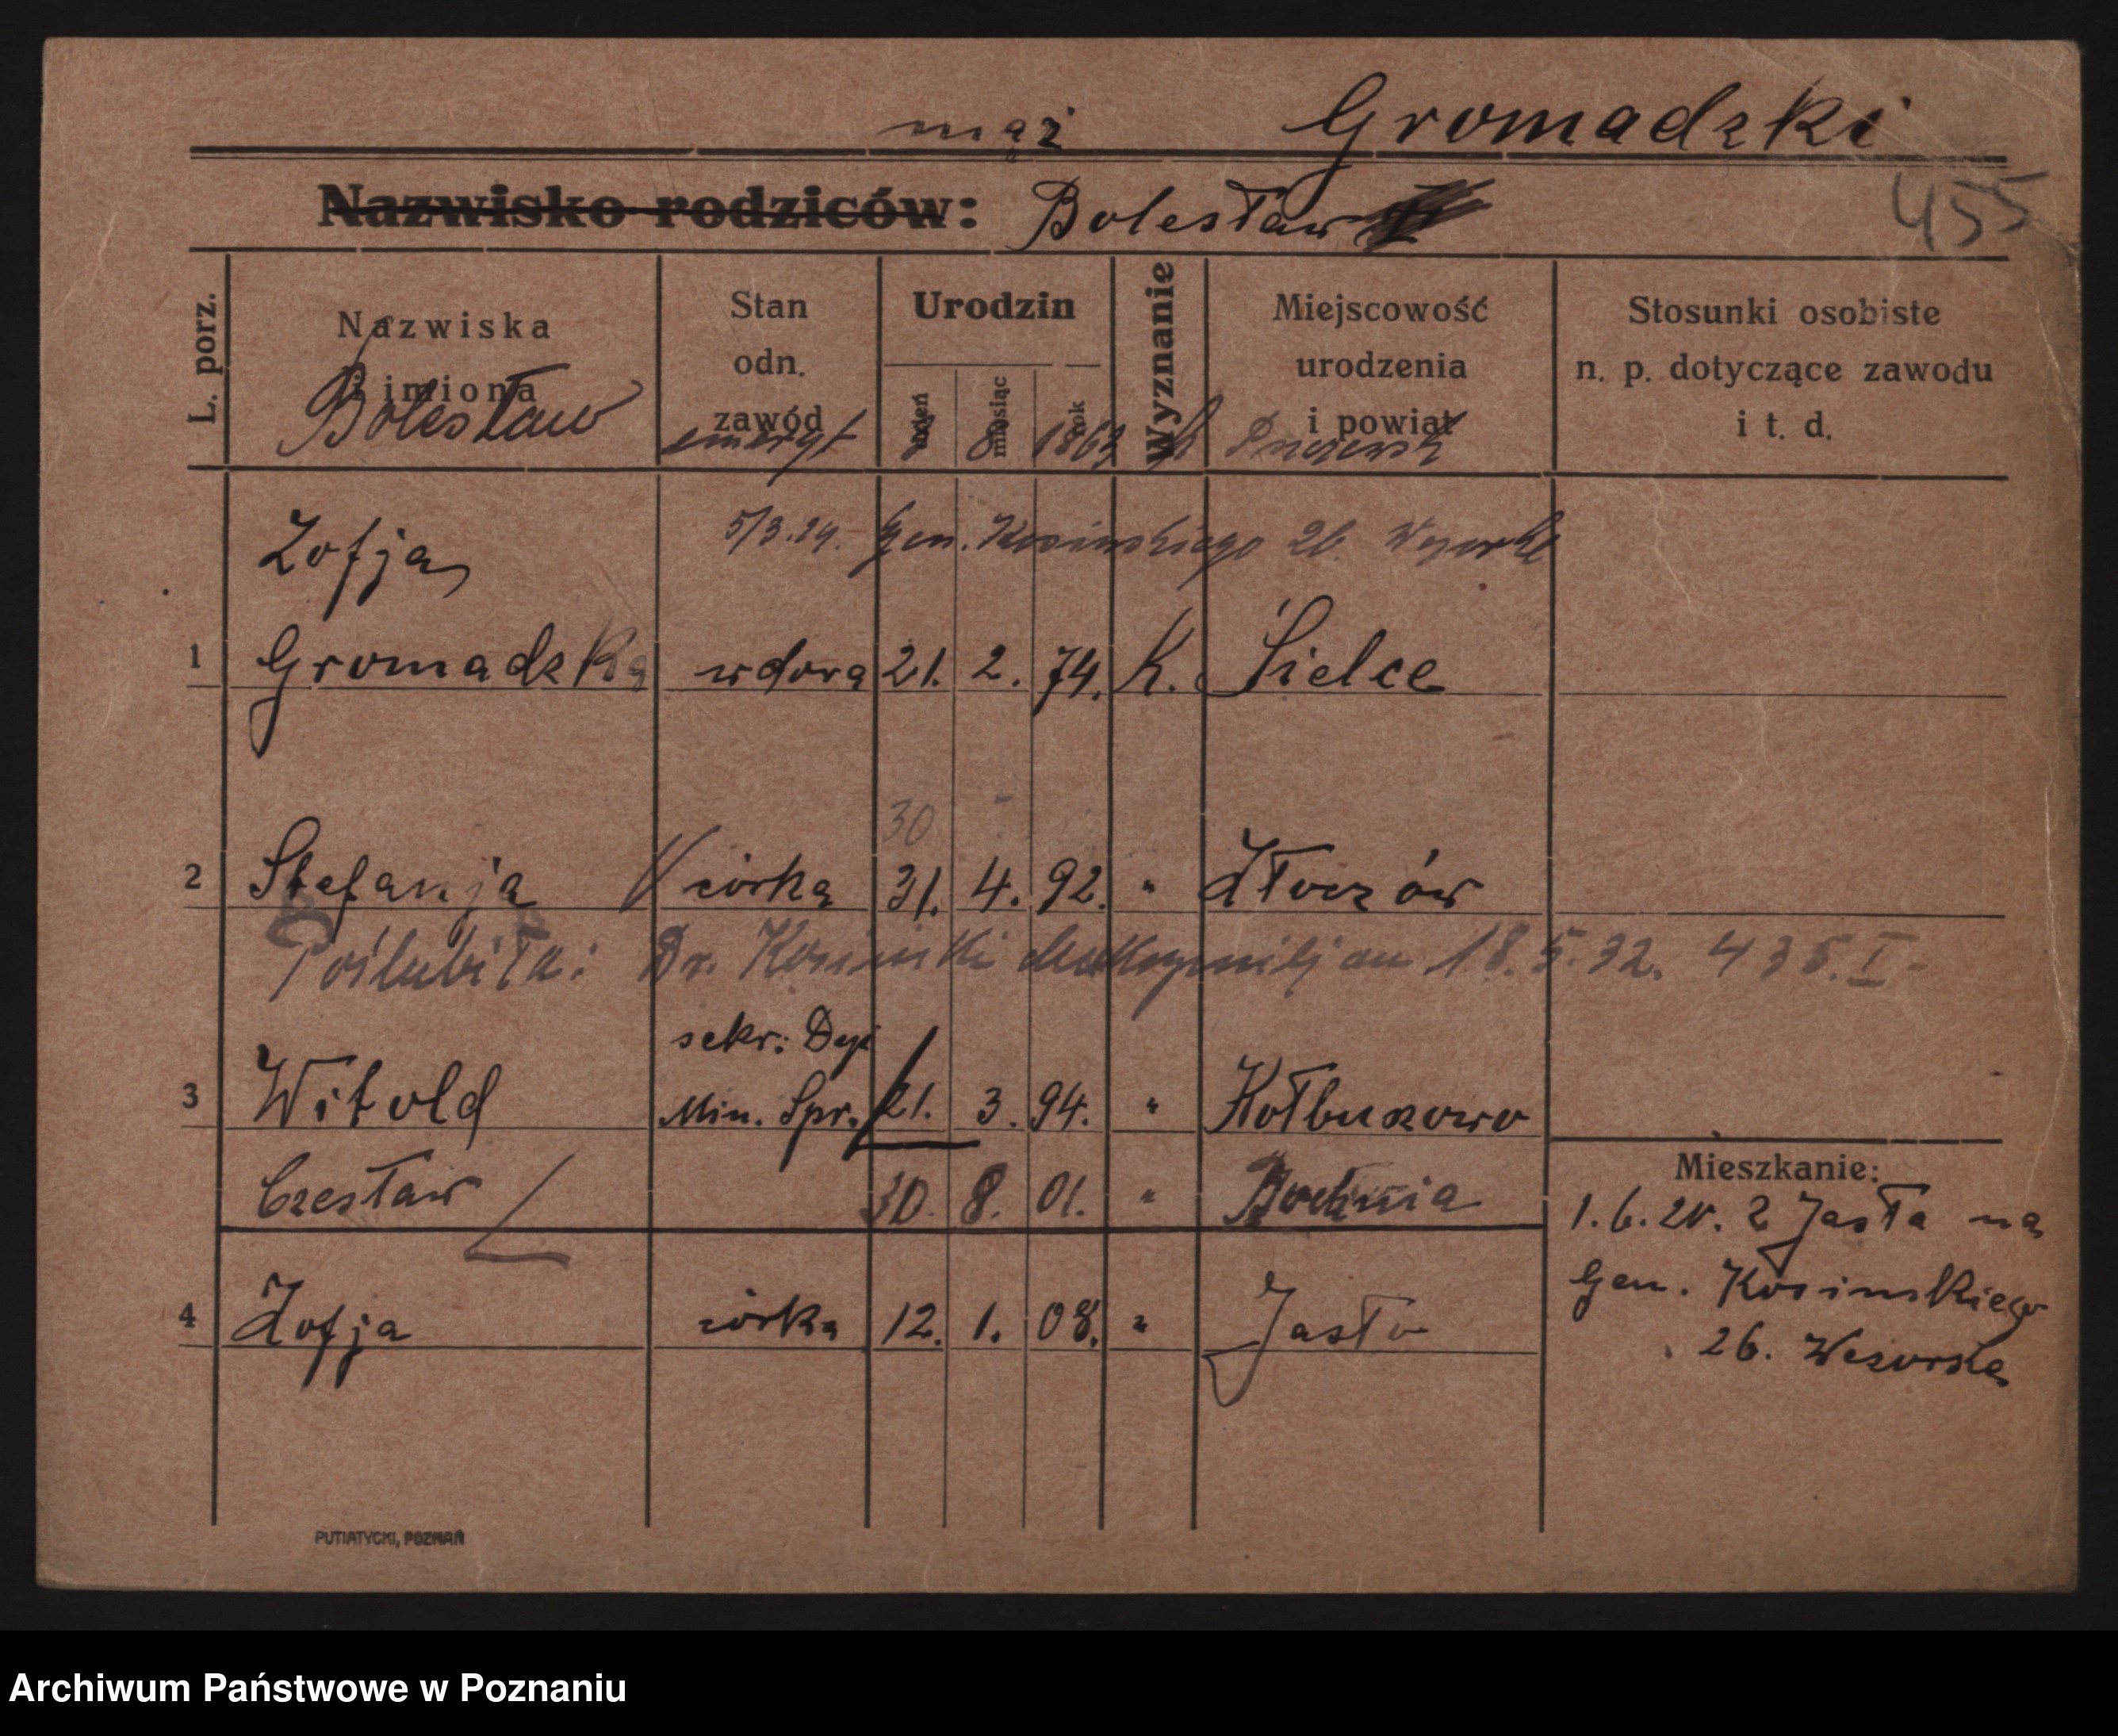 mąż Gromadzki
Nazwisko rodziców: Bolesław
455
L. porz.
Nazwiska
i imiona
Stan
odn.
zawód
Urodzin
dzień
miesiąc
rok
Wyznanie
Miejscowość
urodzenia
i powiat
Stosunki osobiste
n. p. dotyczące zawodu
i t. d.
Bolesław emeryt 8 1863 k
5/3.29. Gen. Kosińskiego 26.
Zofja
1 Gromadzka wdowa 21. 2. 74. K. Sielce
30
2 Stefanja córka 31. 4. 92. " Złoczów
Poślubiła: Dr. Kosiński Maksymiljan 18.5.32. 435.I-
sekr: Dep
3 Witold Min. Spr. 21. 3. 94. " Kołbuszowo
Czesław 30. 8. 01. " Bochnia
4 Zofja córka 12. 1. 08. " Jasło
Mieszkanie:
1.6.20. z Jasła na
Gen. Kosinskiego
26.
PUTIATYCKI, POZNAŃ
Archiwum Państwowe w Poznaniu